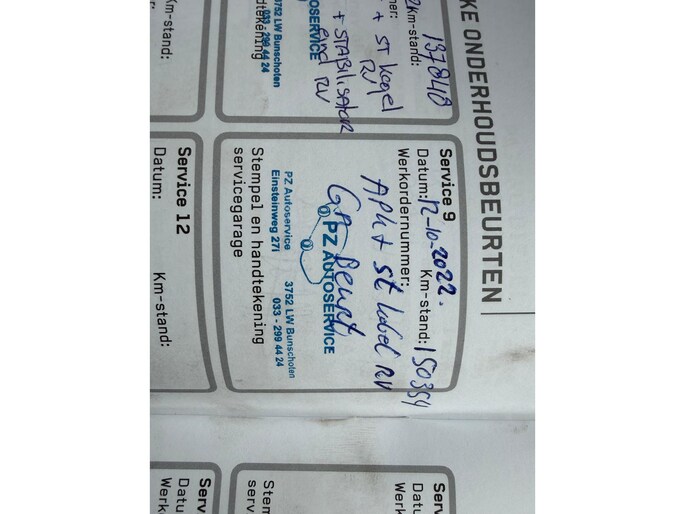 KE ONDERHOUDSBEURTEN
Km-stand: 137840
+ st kogel
RV
+ STABILISATOR
RV
OSERVICE
3752 LW Bunschoten
033 - 299 44 24
dtekening
Service 9
Datum: 12-10-2022. Km-stand: 150354
Werkordernummer:
APK + st kabel RV
Gr Beurt
PZ AUTOSERVICE
PZ Autoservice 3752 LW Bunschoten
Einsteinweg 27i 033 - 299 44 24
Stempel en handtekening
servicegarage
Km-stand:
Service 12
Datum: Km-stand:
Serv
Datu
Werk
Stem
serv
Serv
Datu
Werk